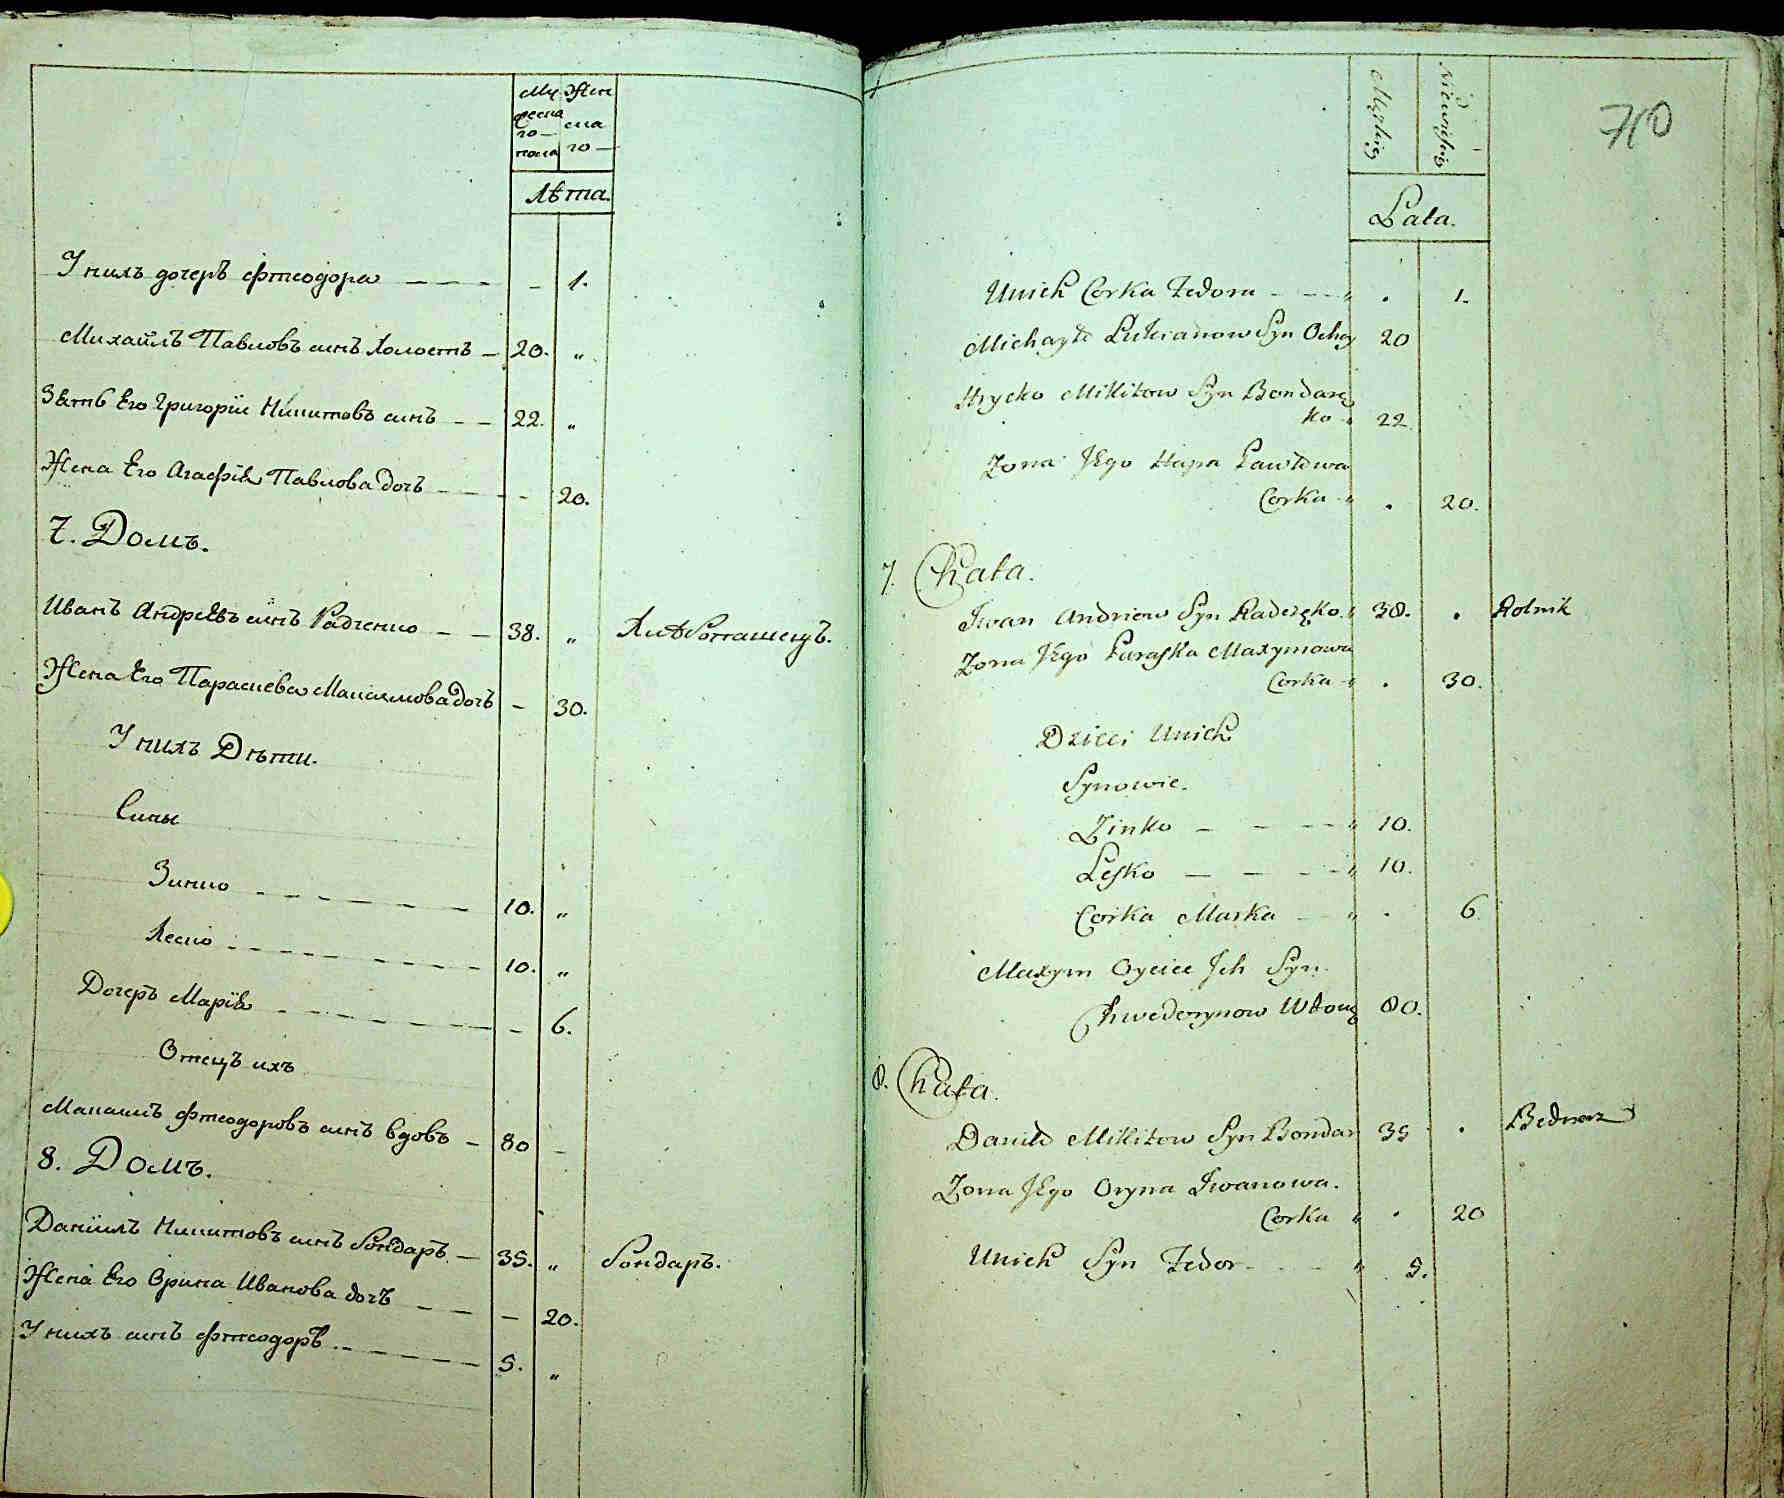 Му Жен
жеска ска
го го
пола
Лѣта.
У нихъ дочеръ Фтеодора 1.
Михайлъ Павловъ синъ Холостъ 20. „
Зять Его Григорій Никитовъ синъ 22. „
Жена Его Агафія Павлова дочъ 20.
7. Домъ.
Иванъ Андреевъ синъ Радченко 38. „ Хлѣбопашецъ.
Жена Его Параскева Максимова дочъ 30.
У нихъ Дѣти.
Сины
Зинко 10. „
Леско 10. „
Дочеръ Марія 6.
Отецъ ихъ
Максимъ Фтеодоровъ синъ вдовъ 80
8. Домъ.
Даніилъ Никитовъ синъ Бондаръ 35. „ Бондаръ.
Жена Его Орина Иванова дочъ 20.
У нихъ синъ Фтеодоръ 5. „
Męskiey Niewieskiey 70
Lata.
Unich Corka Fedora 1.
Michayło Syn 20
Hrycko Mikitow Syn Bondarę
ko 22
Zona Jego Hapa Pawłowa
Corka 20.
7. Chata.
Iwan Andriew Syn Radczęko 38. Rolnik
Zona Jego Paraska Maxymowa
Corka 30.
Dzieci Unich
Synowie.
Zinko 10.
Lesko 10.
Corka Marka 6
Maxym Oyciec Ich Syn
Chwedorynow Wdowy 80.
8. Chata.
Daniło Mikitow Syn Bondar 35 Bednarz
Zona Jego Oryna Iwanowa.
Corka 20
Unich Syn Fedor 5.